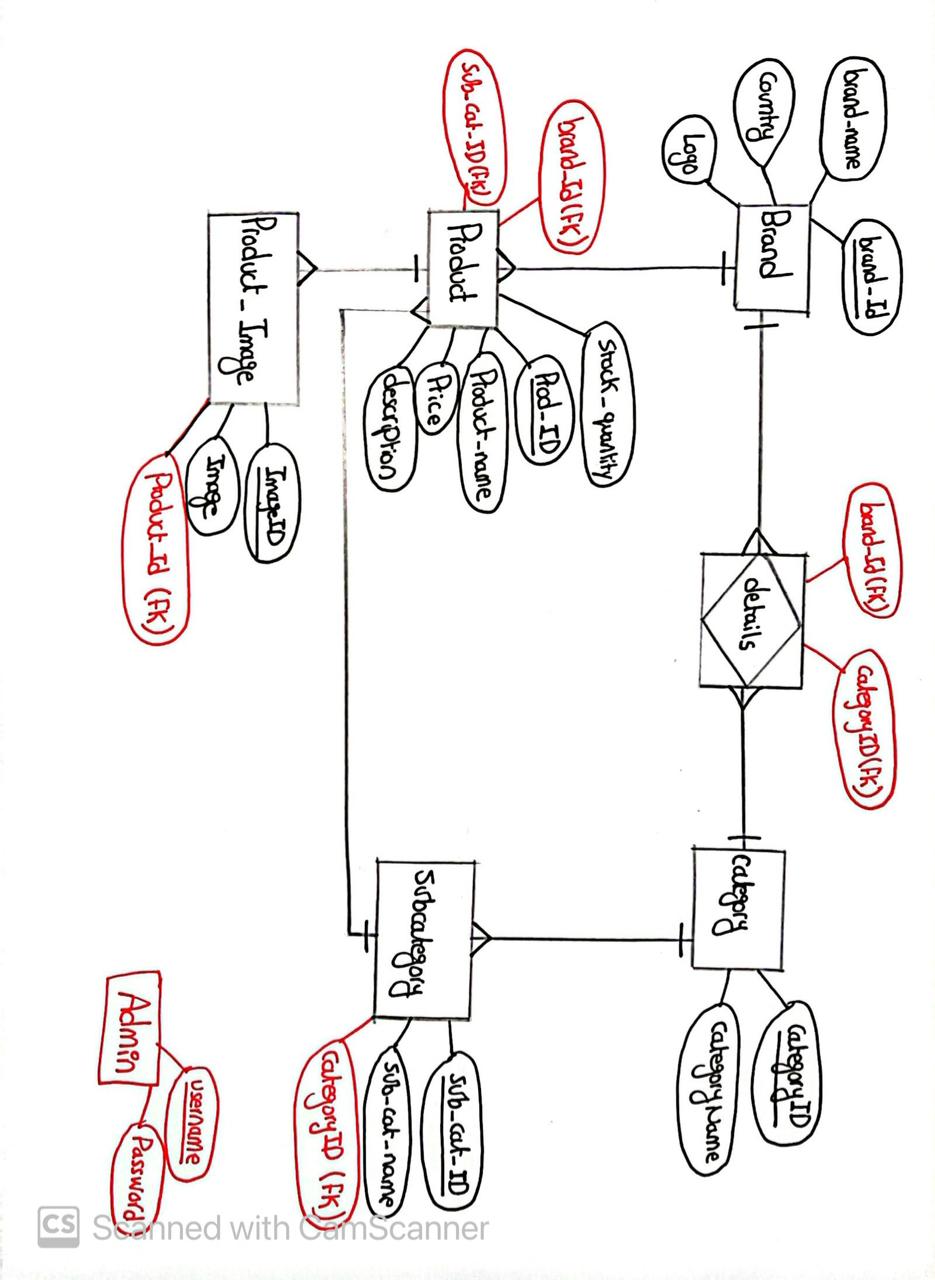 brand_name
brand_Id
brand_Id(FK)
CategoryID(FK)
Country
Brand
details
Category
CategoryID
CategoryName
Logo
Stock_quantity
brand_Id(FK)
Prod_ID
Sub_cat_ID(FK)
Product
Product_name
Price
description
Subcategory
Sub_cat_ID
Sub_cat_name
CategoryID (FK)
Product_Image
ImageID
Image
Product_Id (FK)
Admin
username
Password
CS Scanned with CamScanner